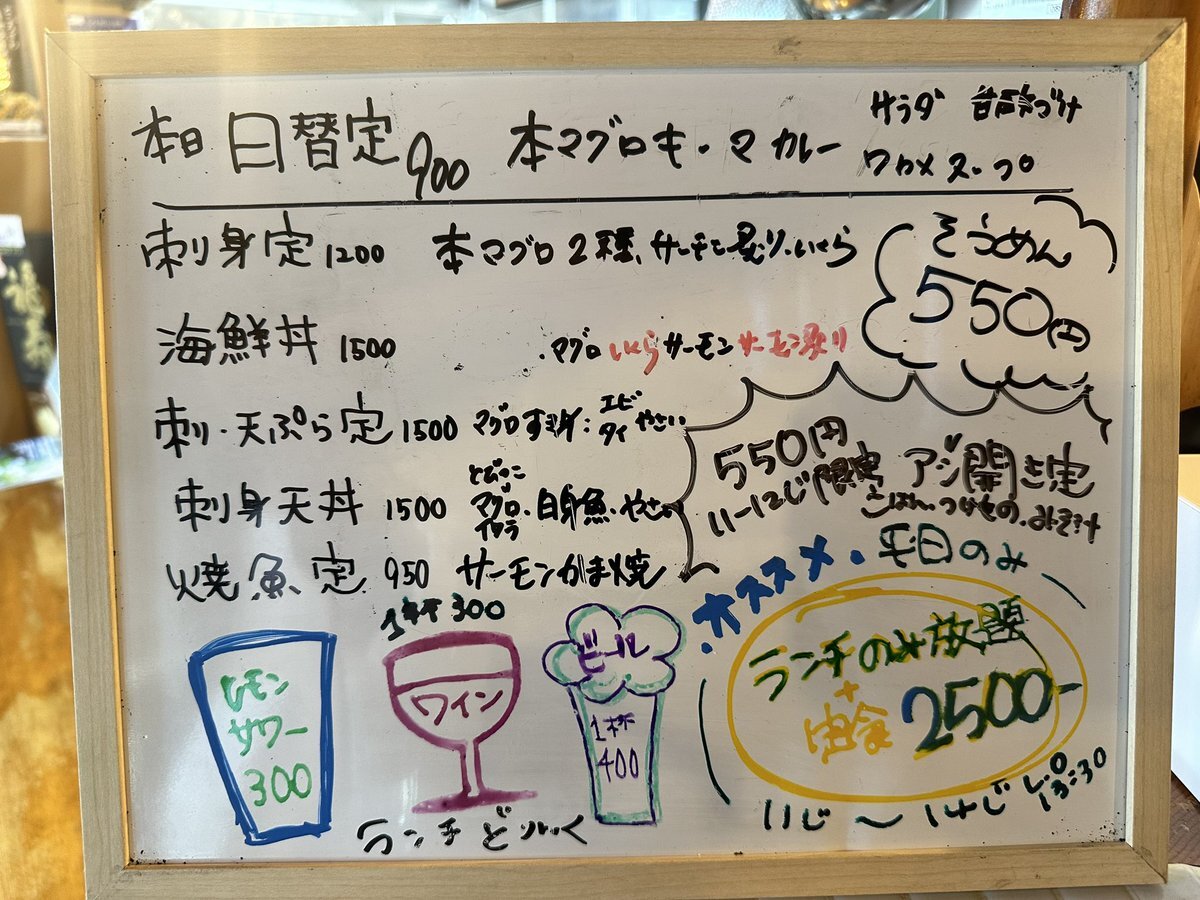 本日 日替定 900 本マグロキーマカレー
サラダ 甘酢づけ
ワカメスープ
刺身定 1200 本マグロ2種、サーモン炙り、いくら
そうめん
550(土)
海鮮丼 1500 ・マグロ いくら サーモン サーモン炙り
刺・天ぷら定 1500 マグロすき身: エビ タイ やさい
550円
11ー12じ限定 アジ開き定
ごはん、つけもの、みそ汁
刺身天丼 1500 とびっこ マグロ・イクラ・白身魚・やさい
焼魚定 950 サーモンかま焼
・オススメ・平日のみ
ランチのみ放題
+
定食 2500-
11じ〜14じ L.O 13:30
レモン
サワー
300
1杯300
ワイン
ビール
1杯
400
ランチどりんく